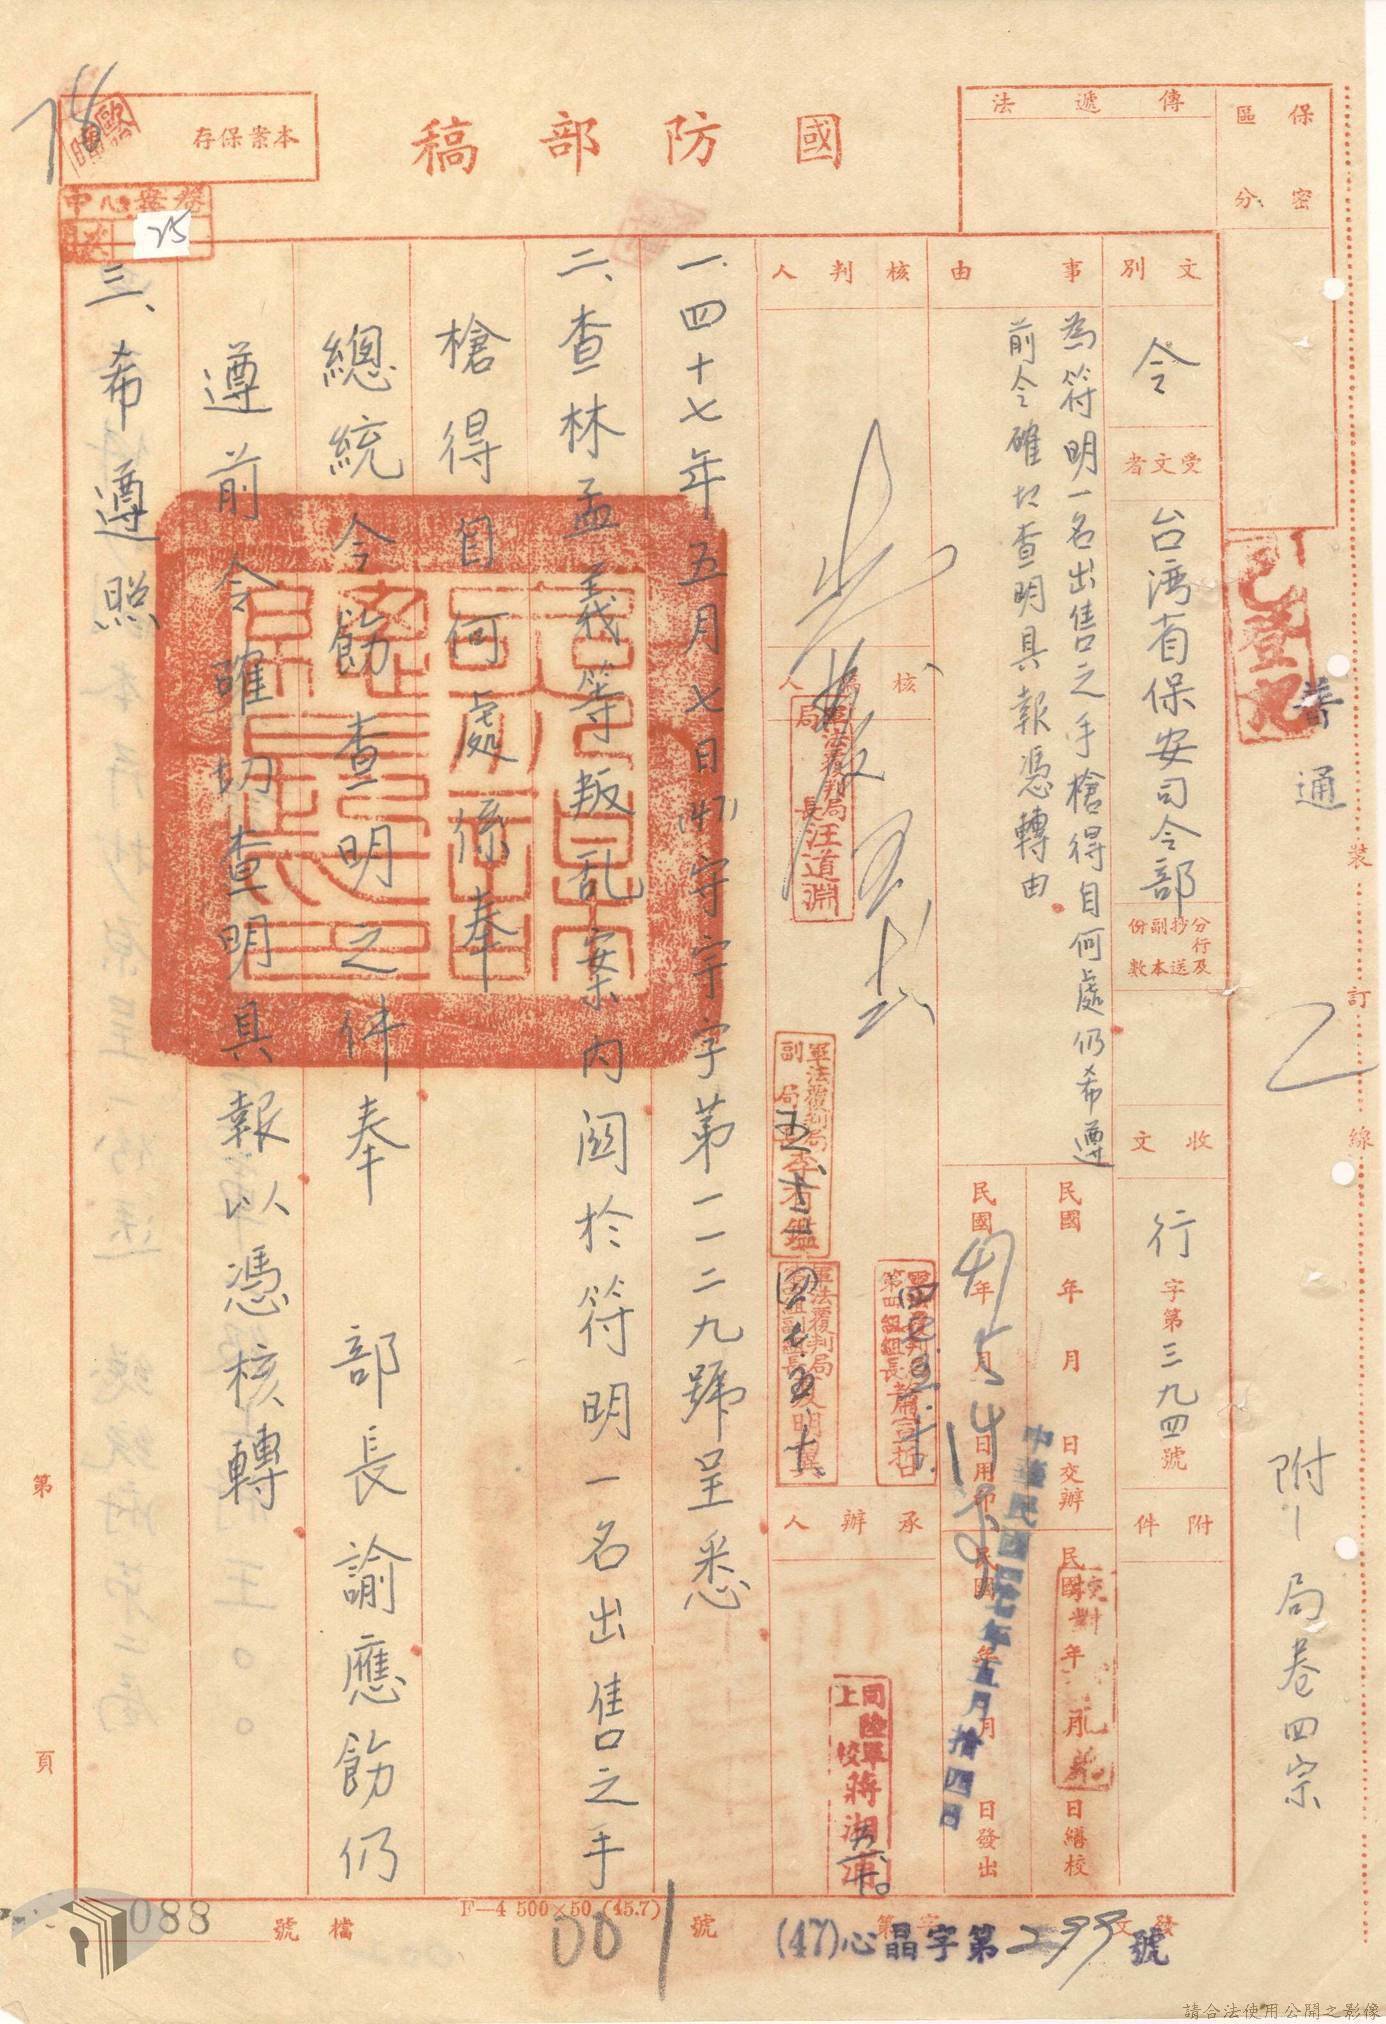 國防部稿
本案保存
傳遞法
保密區分
普通
裝
訂
線
附一局卷四宗
文別
令
受文者
台湾省保安司令部
分行及抄送副本份數
收文
行字第三九四號
附件
事由
為符明一名出售之手槍得自何處仍希遵
前令確切查明具報憑轉由
民國 年 月 日交辦
民國 年 月 日繕校
民國47年5月14日用印
民國 年 月 日發出
中華民國四十七年五月拾四日
核判人
核稿人
軍法覆判局局長汪道淵
承辦人
一、四十七年五月七日(47)守宇字第一一二九號呈悉
二、查林孟義等叛乱案內關於符明一名出售之手
槍得自何處係奉
總統令飭查明之件奉 部長諭應飭仍
遵前令確切查明具報以憑核轉
三、希遵照
第 頁
75
088
檔號
F—4 500×50 (45.7)
001
號
發文
字第
(47)心晶字第299號
請合法使用公開之影像